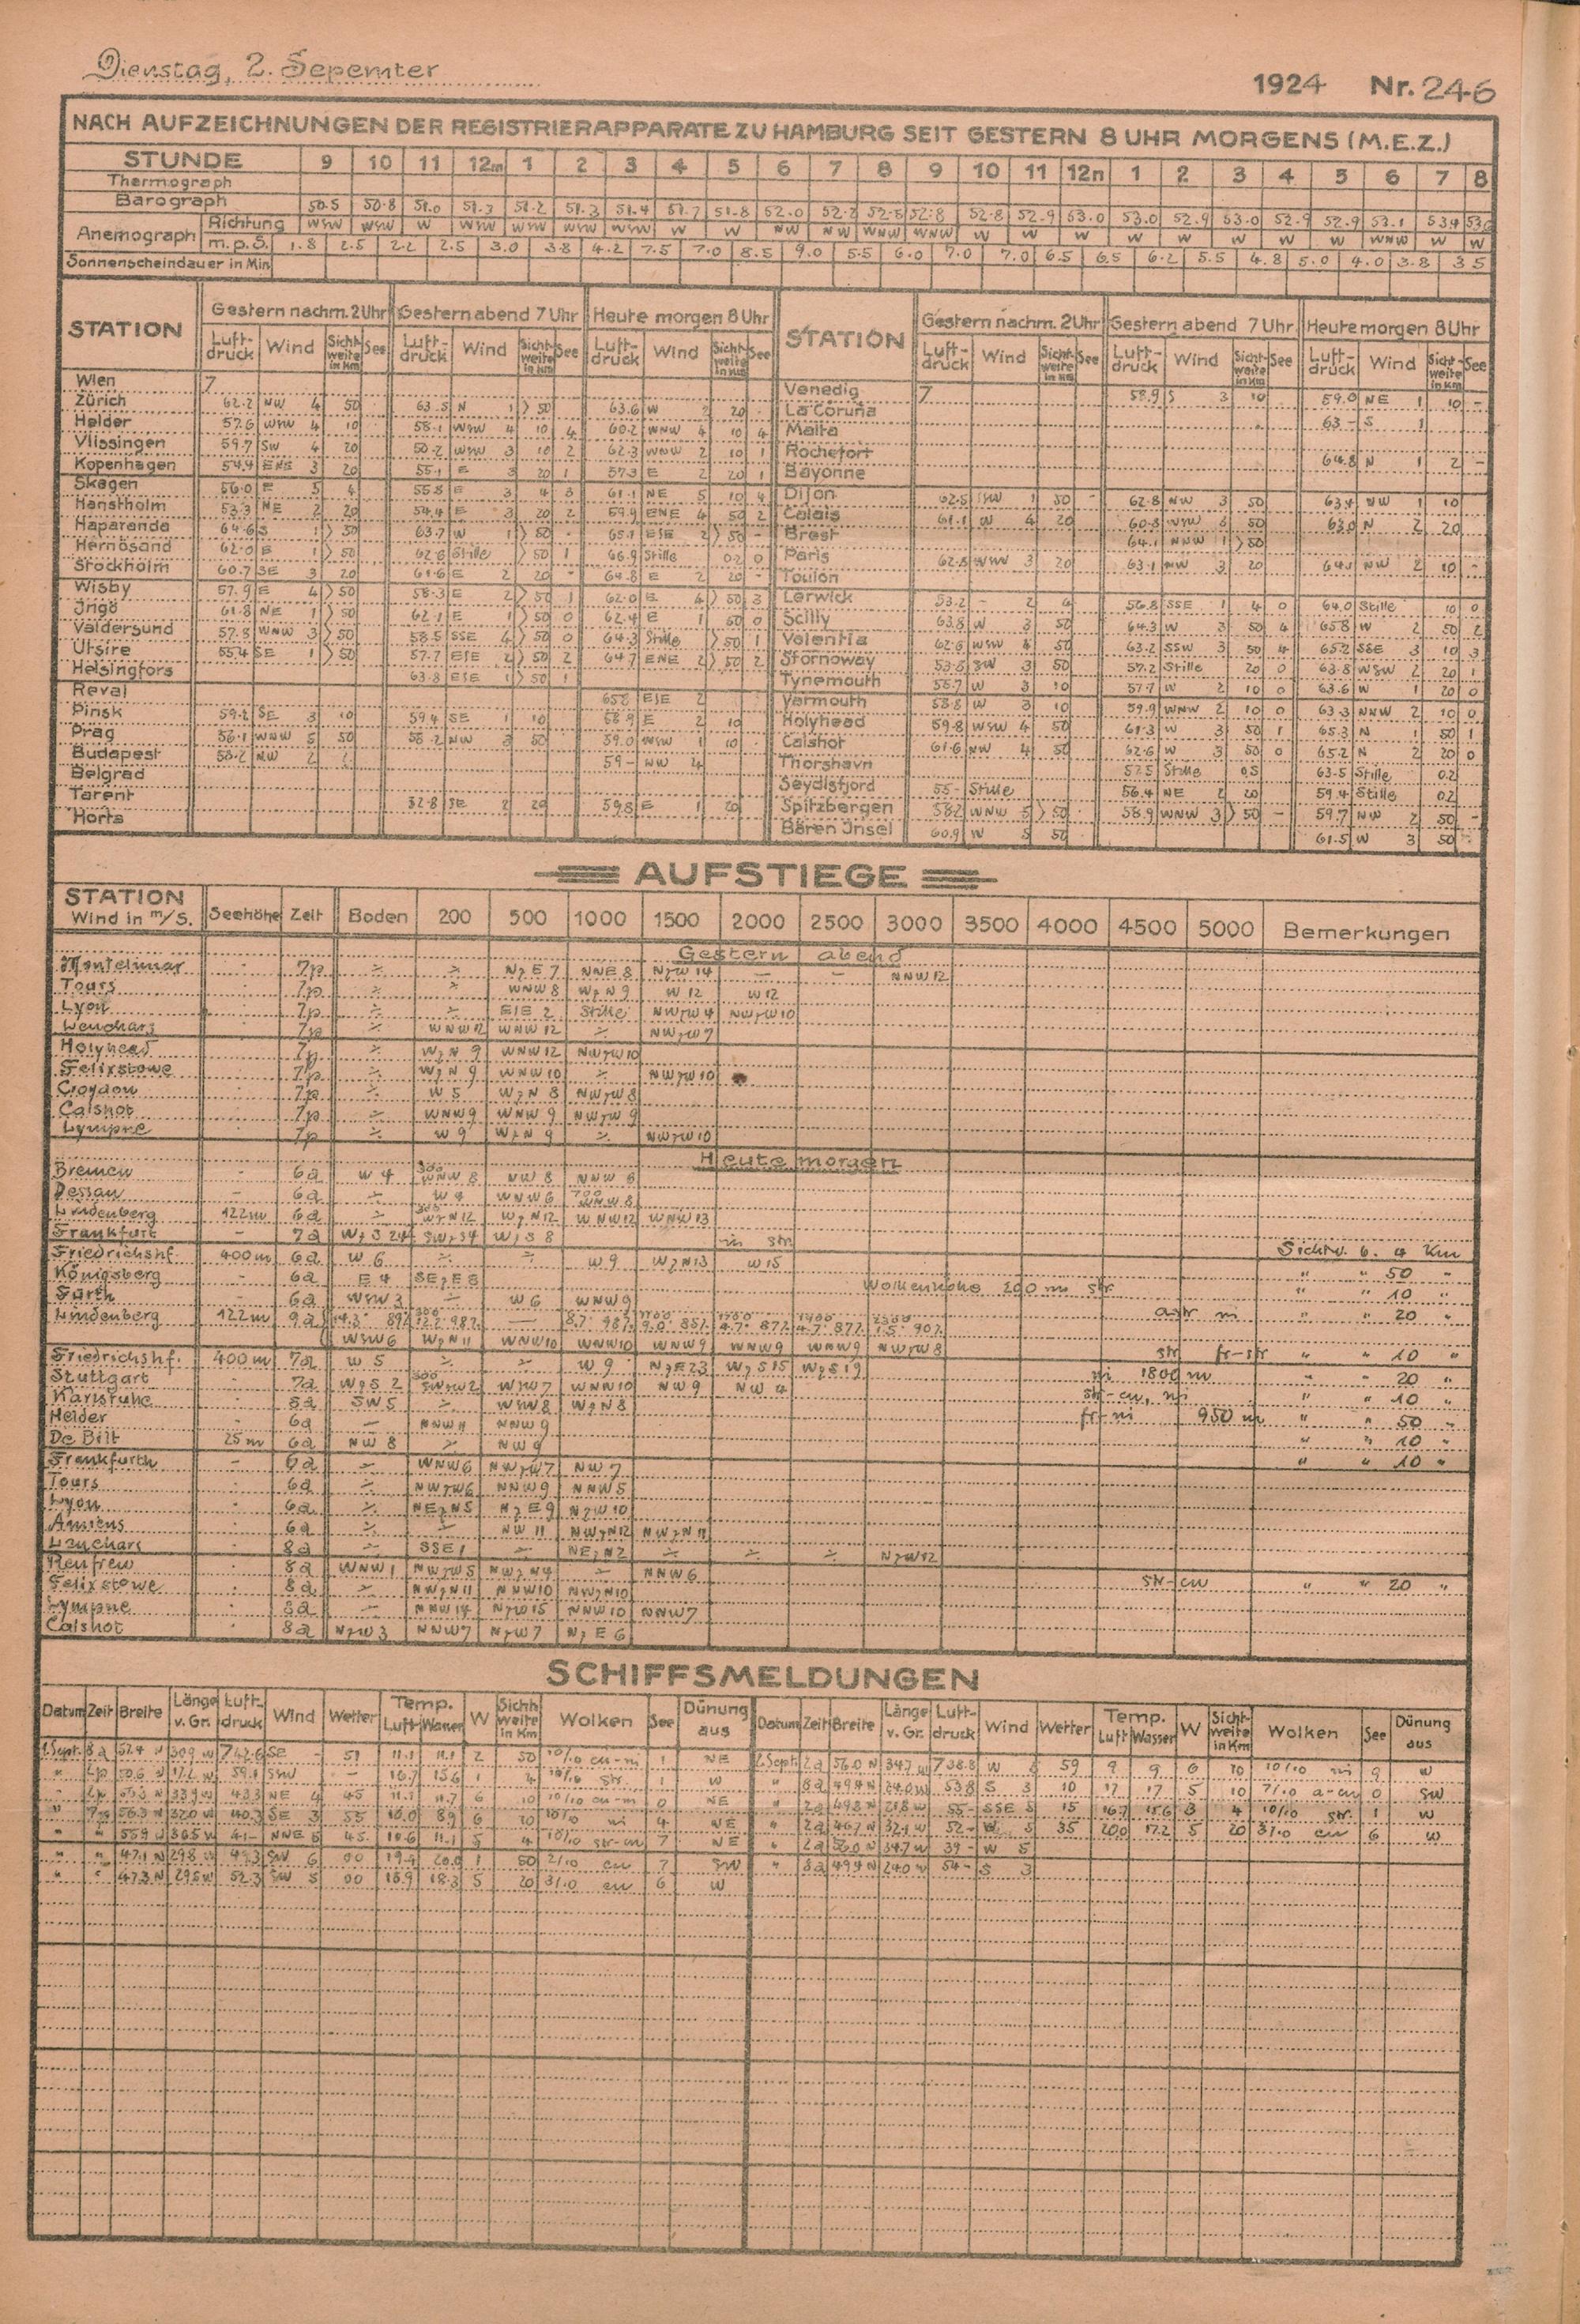 Dienstag, 2. Sepemter
1924 Nr. 246
NACH AUFZEICHNUNGEN DER REGISTRIERAPPARATE ZU HAMBURG SEIT GESTERN 8 UHR MORGENS (M.E.Z.)
STUNDE 9 10 11 12m 1 2 3 4 5 6 7 8 9 10 11 12n 1 2 3 4 5 6 7 8
Thermograph
Barograph 50.5 50.8 51.0 51.2 51.2 51.3 51.4 51.7 51.8 52.0 52.2 52.5 52.8 52.8 52.9 53.0 53.0 52.9 53.0 52.9 52.9 53.1 53.4
Anemograph Richtung WSW WSW W WSW WSW WSW WSW W W NW NW WNW WNW W W W W W W W W WNW W W
m.p.S. 1.8 2.5 2.2 2.5 3.0 3.8 4.2 7.5 7.0 8.5 9.0 5.5 6.0 7.0 7.0 6.5 6.5 6.2 5.5 4.8 5.0 4.0 3.8 3.5
Sonnenscheindauer in Min
STATION Gestern nachm. 2 Uhr Gestern abend 7 Uhr Heute morgen 8 Uhr STATION Gestern nachm. 2 Uhr Gestern abend 7 Uhr Heute morgen 8 Uhr
Luft-druck Wind Sicht-weite in Km See Luft-druck Wind Sicht-weite in Km See Luft-druck Wind Sicht-weite in Km See Luft-druck Wind Sicht-weite in Km See Luft-druck Wind Sicht-weite in Km See Luft-druck Wind Sicht-weite in Km See
Wien 7 Venedig 7 58.9 S 3 10 59.0 NE 1 10 -
Zürich 62.2 NW 4 50 63.5 N 1 > 50 63.6 W 2 20 - La Coruña 63 - S 1
Helder 57.6 WNW 4 10 58.1 WSW 4 10 4 60.2 WNW 4 10 4 Malta
Vlissingen 59.7 SW 4 20 WSW 3 10 2 62.3 WNW 2 10 1 Rochefort 64.8 N 1 2 -
Kopenhagen 54.4 ENE 3 20 55.1 E 3 20 1 57.3 E 2 20 1 Bayonne
Skagen 56.0 E 5 4 55.8 E 3 4 3 61.1 NE 5 10 4 Dijon 62.5 1 50 - 62.8 NW 3 50 63.4 NW 1 10
Hanstholm 53.3 NE 2 20 54.4 E 3 20 2 59.9 ENE 4 50 2 Calais 61.1 W 4 20 60.8 WSW 3 50 63.0 N 2 20
Haparanda 64.6 S 1 > 50 63.7 W 1 > 50 - 65.1 ESE 2 > 50 - Brest 64.1 NNW 1 > 50
Hernösand 62.0 E 1 > 50 62.8 Stille > 50 1 66.9 Stille 0.2 0 Paris 62.8 WNW 3 20 63.1 NW 3 20 NW 2 10 -
Stockholm 60.7 SE 3 20 61.6 E 2 20 - 64.8 E 2 20 - Toulon
Wisby 57.9 E 4 > 50 58.3 E 2 > 50 1 62.0 E 4 > 50 3 Lerwick 53.2 - 2 56.8 SSE 1 4 0 64.0 Stille 10 0
Jngö 61.8 NE 1 > 50 62.1 E 1 > 50 0 62.4 E 1 50 0 Scilly 63.8 W 3 50 64.3 W 3 50 4 65.8 W 2 50 2
Valdersund 57.8 WNW 3 > 50 58.5 SSE 4 > 50 0 64.3 Stille > 50 1 Valentia 62.6 WSW 4 50 63.2 SSW 3 50 4 65.2 SSE 3 10 3
Utsire 55.4 SE 1 > 50 57.7 ESE 2 > 50 2 64.7 ENE 2 > 50 2 Stornoway 53.8 SW 3 50 57.2 Stille 20 0 63.8 WSW 2 20 1
Helsingfors 63.8 ESE 1 > 50 1 Tynemouth 55.7 W 3 10 57.7 W 2 10 0 63.6 W 1 20 0
Reval ESE 2 Yarmouth 58.8 W 3 10 59.9 WNW 2 10 0 63.3 NNW 2 10 0
Pinsk 59.2 SE 3 10 59.4 SE 1 10 58.9 E 2 10 Holyhead 59.8 WSW 4 50 61.3 W 3 50 1 65.3 N 1 50 1
Prag 56.1 WNW 5 50 58.2 NW 3 50 59.0 WSW 1 10 Calshot 61.6 NW 4 50 62.6 W 3 50 0 65.2 N 2 20 0
Budapest NW 2 59 - NW 4 Thorshavn 57.5 Stille 0.5 63.5 Stille 0.2
Belgrad Seydisfjord 55 - Stille 56.4 NE 2 20 59.4 Stille 0.2
Tarent SE 2 20 59.8 E 1 20 Spitzbergen 58.2 WNW 5 > 50 58.9 WNW 3 > 50 - 59.7 NW 2 50 -
Horta Bären Jnsel 60.9 W 5 50 61.5 W 3 50
AUFSTIEGE
STATION Wind in m/S. Seehöhe Zeit Boden 200 500 1000 1500 2000 2500 3000 3500 4000 4500 5000 Bemerkungen
Gestern abend
Montelimar 7p N z E 7 NNE 8 N z W 14 - - NNW 12
Tours 7p WNW 8 W z N 9 W 12 W 12
Lyon 7p ESE 2 Stille NW z W 4 NW z W 10
Leuchars 7p WNW 12 WNW 12 NW z W 7
Holyhead 7p W z N 9 WNW 12 NW z W 10
Felixstowe 7p W z N 9 WNW 10 NW z W 10
Croydon 7p W 5 W z N 8 NW z W 8
Calshot 7p WNW 9 WNW 9 NW z W 9
Lympne 7p W 9 W z N 9 NW z W 10
Heute morgen
Bremen - 6a W 4 300 WNW 8 NW 8 NNW 8
Dessau - 6a W 4 WNW 6 700 WNW 8
Lindenberg 122m 6a 300 W z N 12 W z N 12 WNW 12 WNW 13
Frankfurt - 7a W z S 8 ni str
Friedrichshf. 400m 6a W 6 W 9 W z N 13 W 15 Sichtw. b. 4 Km
Königsberg - 6a E 4 SE z E 8 Wolkenhöhe 200 m str " " 50 "
Fürth - 6a WSW 3 W 6 WNW 9 " " 10 "
Lindenberg 122m 9a a str ni " " 20 "
WSW 6 W z N 11 WNW 10 WNW 10 WNW 9 WNW 9 WNW 9 NW z W 8
Friedrichshf. 400m 7a W 5 W 9 W z S 15 W z S 19 str fr-str " " 10 "
Stuttgart 7a W z S 2 300 WSW 7 WNW 10 NW 9 NW 4 ni 1800 m " " 20 "
Karlsruhe 8a SW 5 WSW 8 W z N 8 str-cu, ni " " 10 "
Helder 6a NNW 11 NNW 9 fr-ni 950 m " " 50 "
De Bilt 25m 6a NW 8 NW 9 " " 10 "
Frankfurth - 6a WNW 6 NW z W 7 NW 7 " " 10 "
Tours 6a NW z W 6 NNW 9 NNW 5
Lyon 6a NE z N 5 N z E 9 N z W 10
Amiens 6a NW 11 NW z N 12 NW z N 11
Leuchars 8a SSE 1 NE z N 2 N z W 12
Renfrew 8a WNW 1 NW z W 5 NW z N 4 NNW 6
Felixstowe 8a NW z N 11 NNW 10 NW z N 10 str-cu " " 20 "
Lympne 8a NNW 14 N z W 15 NNW 10 NNW 7
Calshot 8a N z W 3 NNW 7 N z W 7 N z E 6
SCHIFFSMELDUNGEN
Datum Zeit Breite Länge v. Gr. Luft-druck Wind Wetter Temp. Luft Wasser W Sicht-weite in Km Wolken See Dünung aus Datum Zeit Breite Länge v. Gr. Luft-druck Wind Wetter Temp. Luft Wasser W Sicht-weite in Km Wolken See Dünung aus
1.Sept. 8a 52.4 N 30.9 W SE - 51 11.1 11.1 2 50 10/10 cu-ni 1 NE 2.Sept. 2a 56.0 N 34.7 W 738.8 W 59 9 9 6 10 10/10 ni 9 W
" 2p 50.6 N 17.2 W 59.1 SSW - 16.7 15.6 1 4 10/10 str. 1 W " 8a 49.4 N 24.0 W 53.8 S 3 10 17 17 5 10 7/10 a-cu 0 SW
" 2p 33.9 W 43.3 NE 4 45 11.7 6 10 10/10 cu-n 0 NE " 2a 49.8 N 21.8 W 55 - SSE 5 15 16.7 15.6 3 4 10/10 str. 1 W
" 7p 56.3 N 32.0 W 40.3 SE 3 55 10.0 8.9 6 20 10/10 ni 4 NE " 2a 46.7 N 32.1 W 52 - W 5 35 20.0 17.2 5 20 3/10 cu 6 W
" " 55.9 W 36.5 W 41 - NNE 5 45 10.6 11.1 5 4 10/10 str-cu 7 NE " 2a 56.0 N 34.7 W 39 - W 5
" " 47.1 N 29.8 W 49.3 SW 6 00 19.4 20.0 1 50 2/10 cu 7 SW " 8a 49.4 N 24.0 W 54 - S 3
" " 47.3 N 29.5 W 52.3 SW 5 00 18.9 18.3 5 20 3/10 cu 6 W